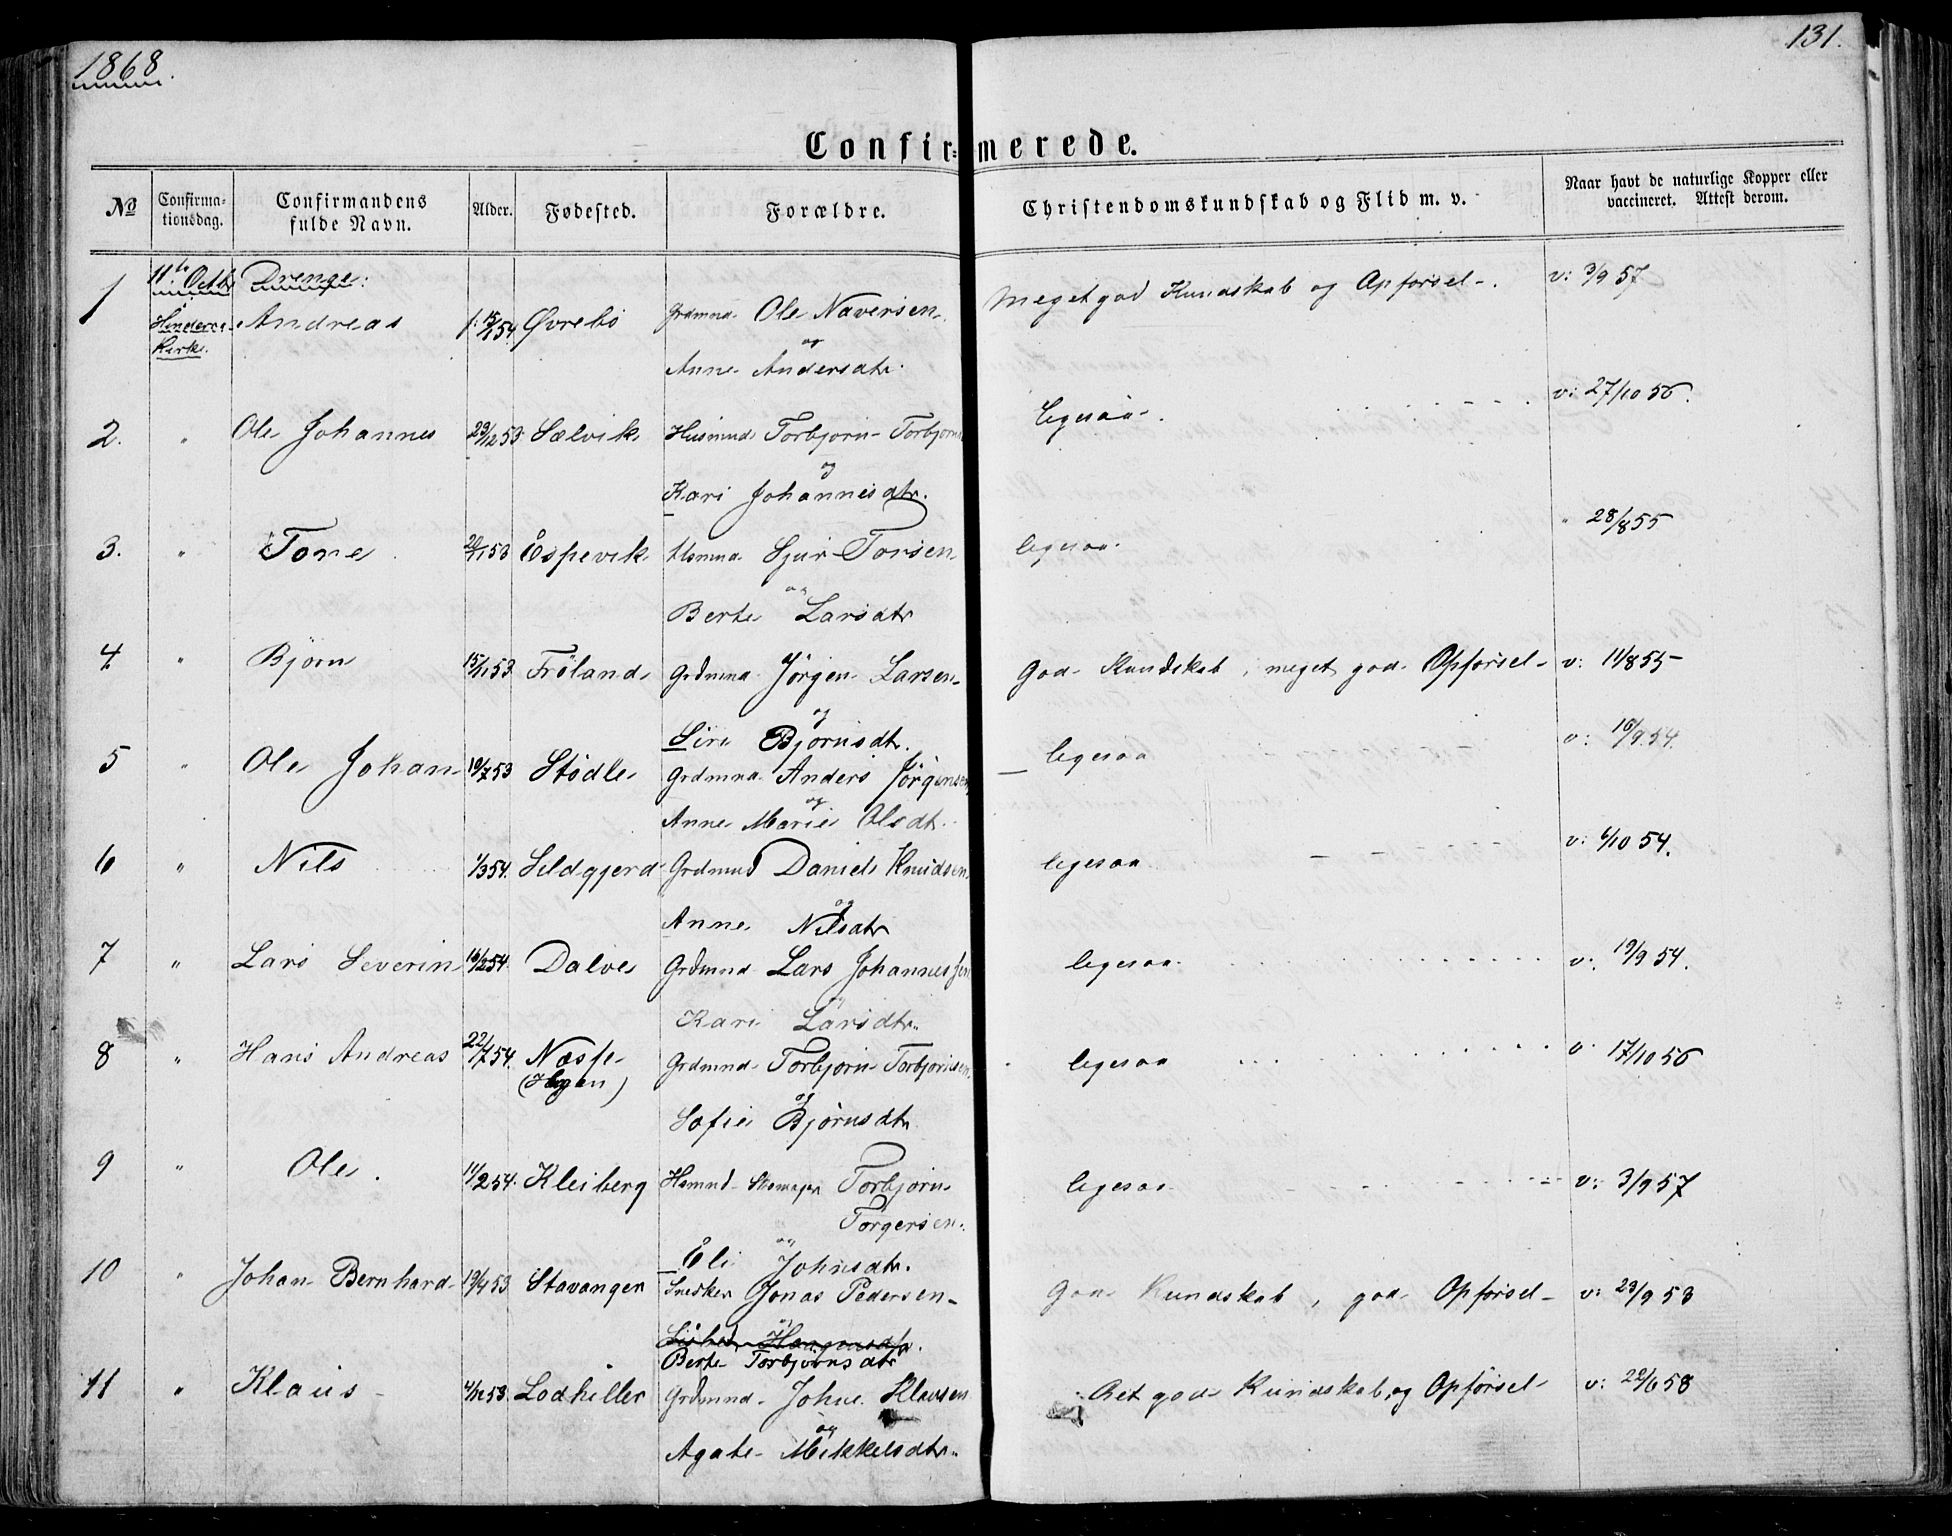 1868.
131.
Confir=merede.
No
Confirma-tionsdag.
Confirmandens fulde Navn.
Alder.
Fødested.
Forældre.
Christendomskundskab og Flid m. v.
Naar havt de naturlige Kopper eller vaccineret. Attest derom.
11te Octbr Drenge:
1 Kirke. Andreas f. 15/1 54 Øvrebö Grdmnd. Ole Naversen Meget god Kundskab og Opförsel. v: 3/9 57
og
Anne Andersdtr.
2. " Ole Johannes 23/12 53 Sælvik Husmnd Torbjørn Torbjørns ligesaa v: 27/10 56.
og
Kari Johannisdtr.
3. " Tore 53 Espevik Sjur Torsen ligesaa " 28/8 55
og
Berte Larsdtr
4. " Björn 15/11 53 Fröland Grdmnd Jörgen Larsen God Kundskab, meget god Opförsel v: 11/8 55
og
Siri Björnsdtr.
5 " Ole Johan 19/7 53 Stödle Grdmnd Anders Jörgensen ligesaa v: 16/9 54.
og
Anne Marie Olsdt.
6 " Nils 1/3 54. Seldgjerd Grdmnd Daniel Knudsen ligesaa v: 6/10 54.
og
Anne Nilsdtr
7 " Lars Severin 16/2 54. Dalve Grdmnd Lars Johannessen ligesaa v: 19/9 54.
og
Kari Larsdtr.
8 " Hans Andreas 22/7 54. Næsse Grdmnd Torbjørn Torbjørnsen ligesaa v. 17/10 56
(Hagen)
og
Sofie Björnsdtr
9 " Ole. 11/2 54. Kleiberg Husmnd Skomager Torbjørn ligesaa v: 3/9 57
Torgersen
og
Eli Johnsdtr.
10 " Johan Bernhard 19/4 53 Stavanger Snedker Jonas Pedersen God Kundskab, god Opförsel v: 23/9 53
og
Berte Torbjörnsdtr
11 " Klaus 4/12 53 Lodheller Grdmnd Johne Klausen Ret god Kundskab og Opförsel v: 22/6 58
og
Agate Mikkelsdtr.